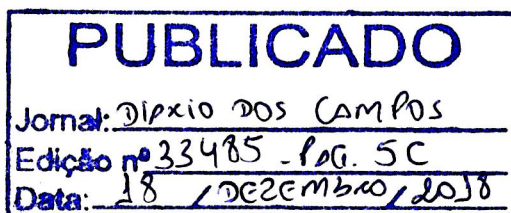 PUBLICADO
Jornal: DIÁRIO DOS CAMPOS
Edição nº 33485 - PAG. 5C
Data: 18 / DEZEMBRO / 2018